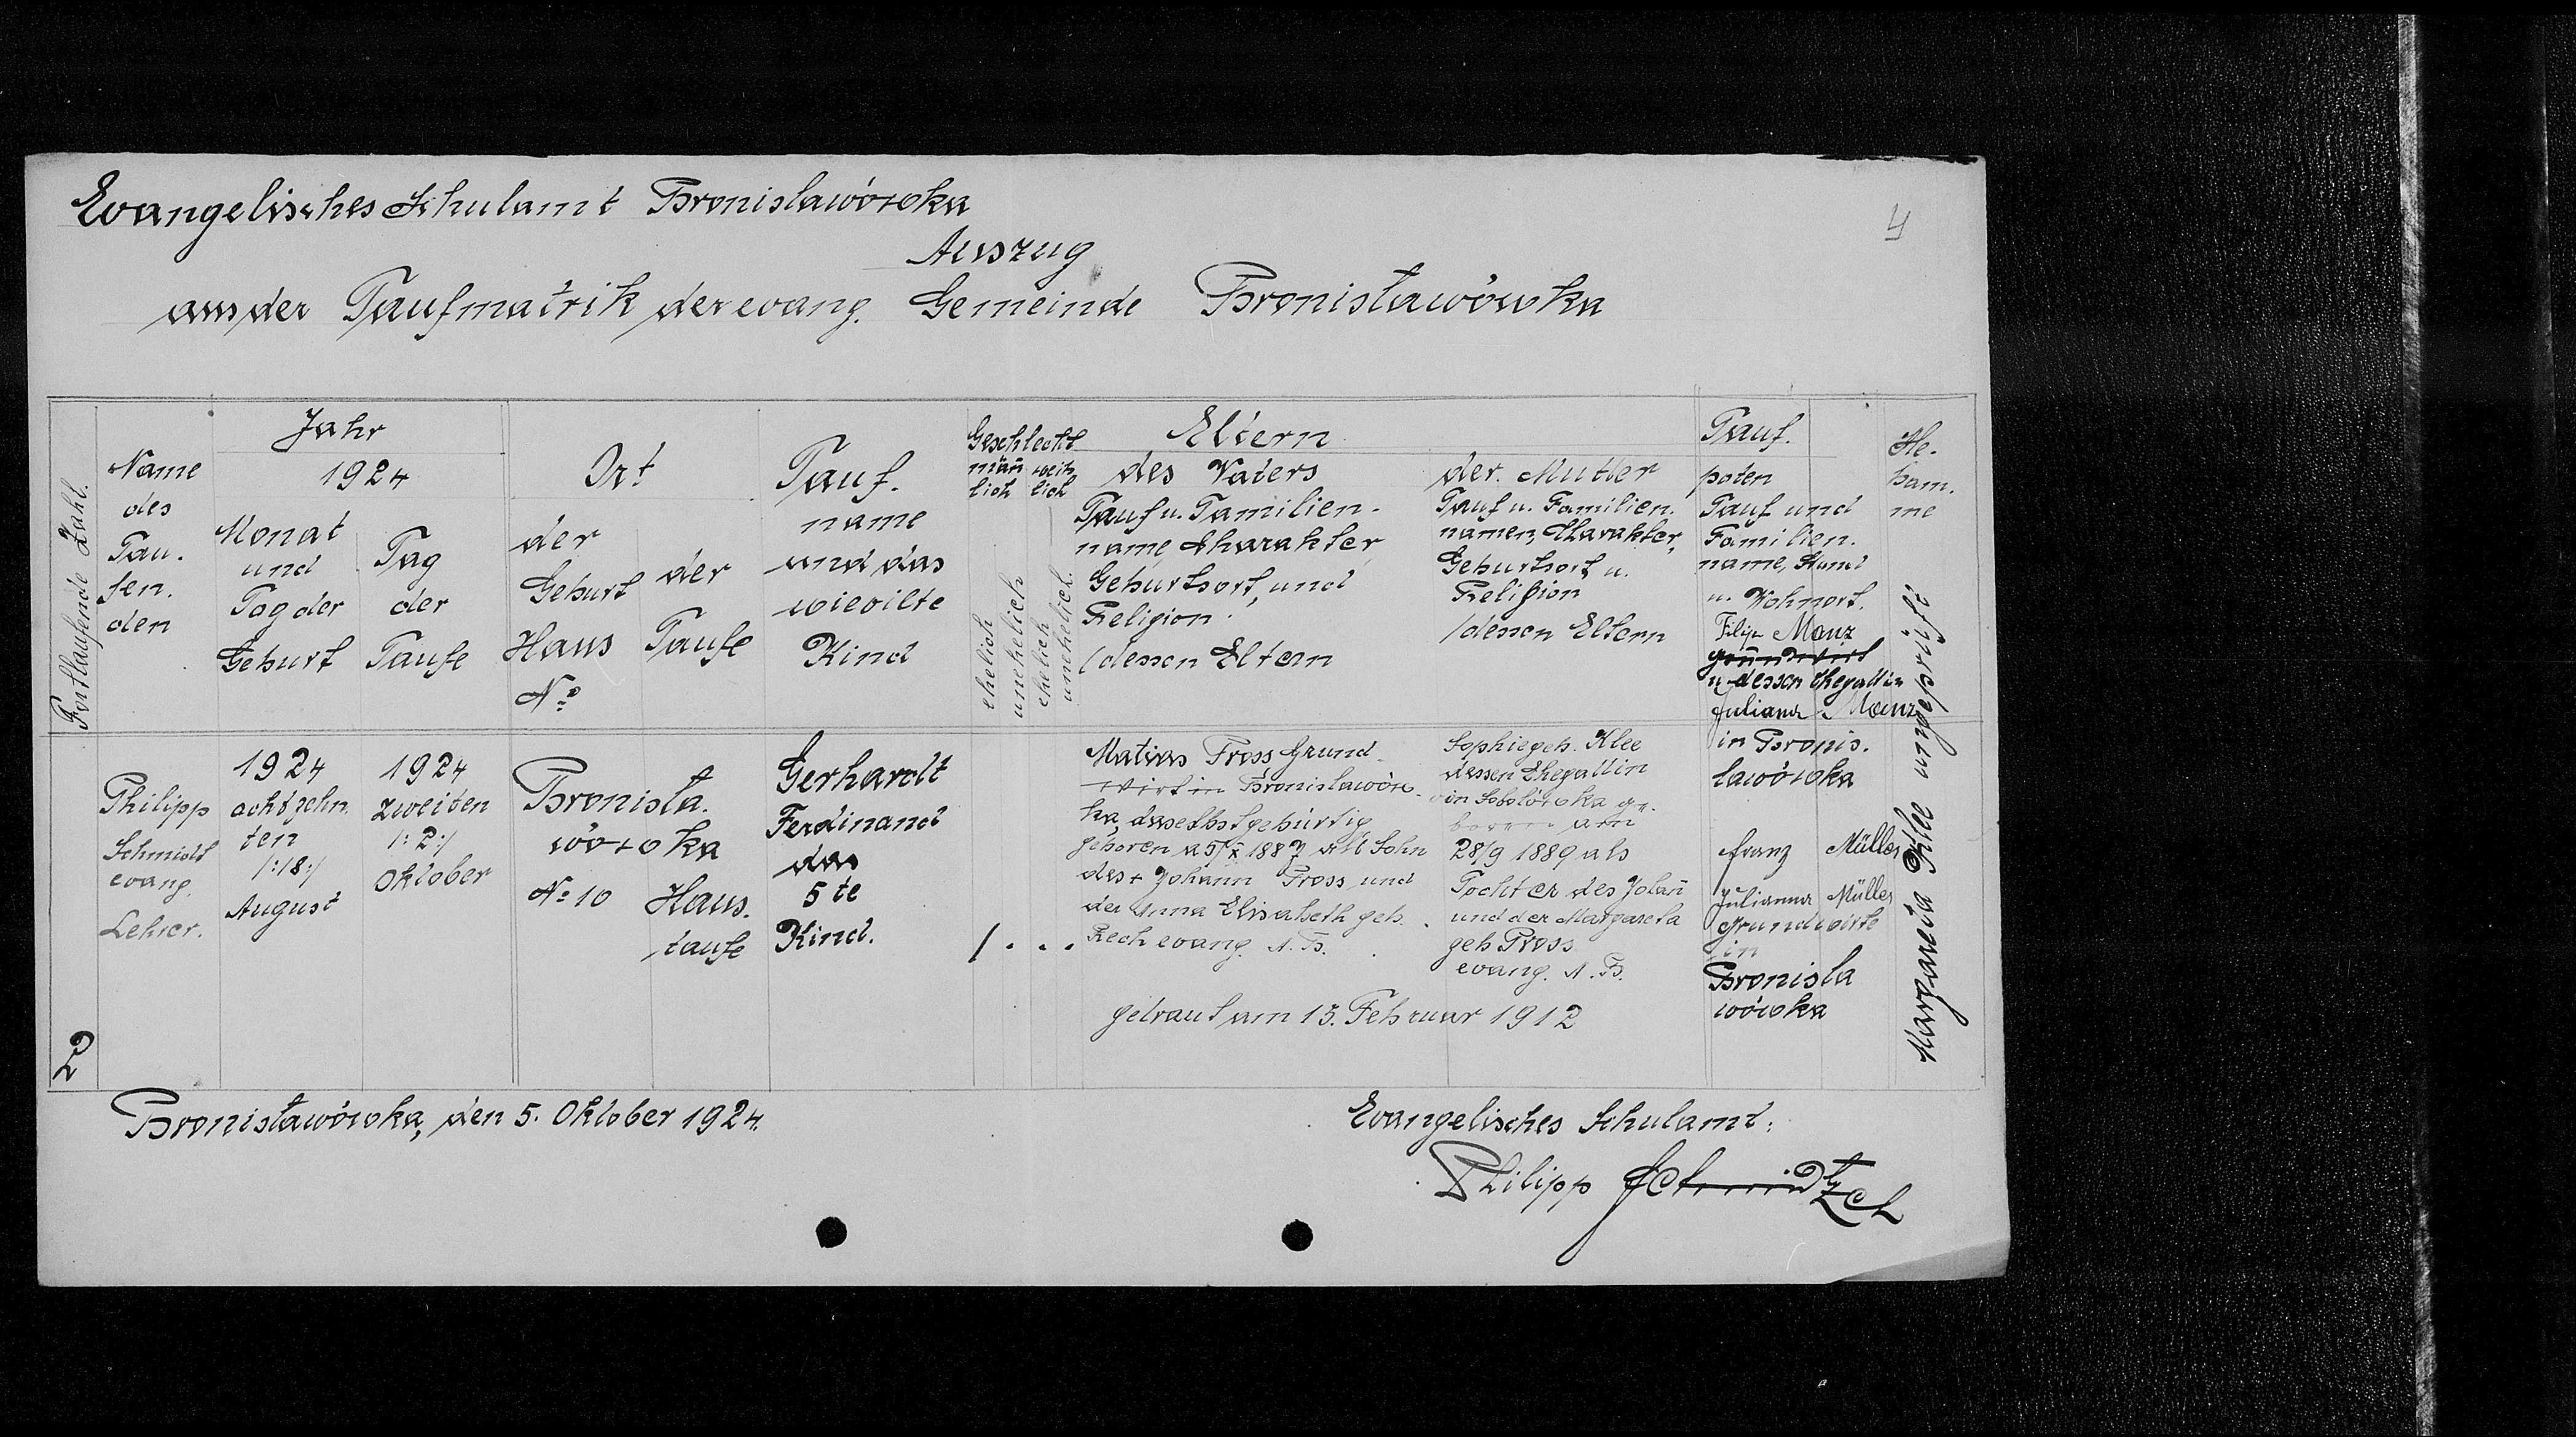 Evangelisches Schulamt Bronislawówka
4
Auszug
aus der Taufmatrik der evang. Gemeinde Bronisławówka
Fortlaufende Zahl.
Name
des
Tau.
fen.
den
Jahr
1924
Monat
und
Tag der
Geburt
Tag
der
Taufe
Ort
der
Geburt
Haus
No
der
Taufe
Tauf.
name
und das
wievilte
Kind
Geschlecht
männ
lich
weib
lich
ehelich
unehelich
ehelich
unehelich.
Eltern
des Vaters
Tauf u. Familien-
name, Charakter,
Geburtsort, und
Religion.
/dessen Eltern
der Mutter
Tauf u. Familien.
namen, Charakter,
Geburtsort u.
Religion
/dessen Eltern
Tauf.
poten
Tauf und
Familien.
name, Stand
u. Wohnort.
He.
bam.
me
2
Philipp
Schmidt
evang.
Lehrer.
1924
achtzehn.
ten
/:18:/
August
1924
zweiten
/:2:/
Oktober
Bronisła.
wówka
No 10
Haus.
taufe
Gerhardt
Ferdinand
das
5te
Kind.
/ . . .
Matias Pross Grund.
wirt in Bronislawów.
ka, daselbst gebürtig
geboren a 5/X 1887 als Sohn
des + Johann Pross und
der Anna Elisabeth geb.
Rech evang. A.B.
Sophie geb. Klee
dessen Ehegattin
in Sobolówka ge.
boren am
28/9 1889 als
Tochter des Johann
und der Margareta
geb Pross
evang. A.B.
getraut am 13. Februar 1912
Filip Manz
Grundwirt
u. dessen Ehegattin
Juliana Manz
in Bronis.
lawówka
Franz Müller
Julianna Müller
Grundwirte
in
Bronisla
wówka
Margareta Klee ungeprüft
Bronisławówka, den 5. Oktober 1924.
Evangelisches Schulamt:
Philipp Schmidt